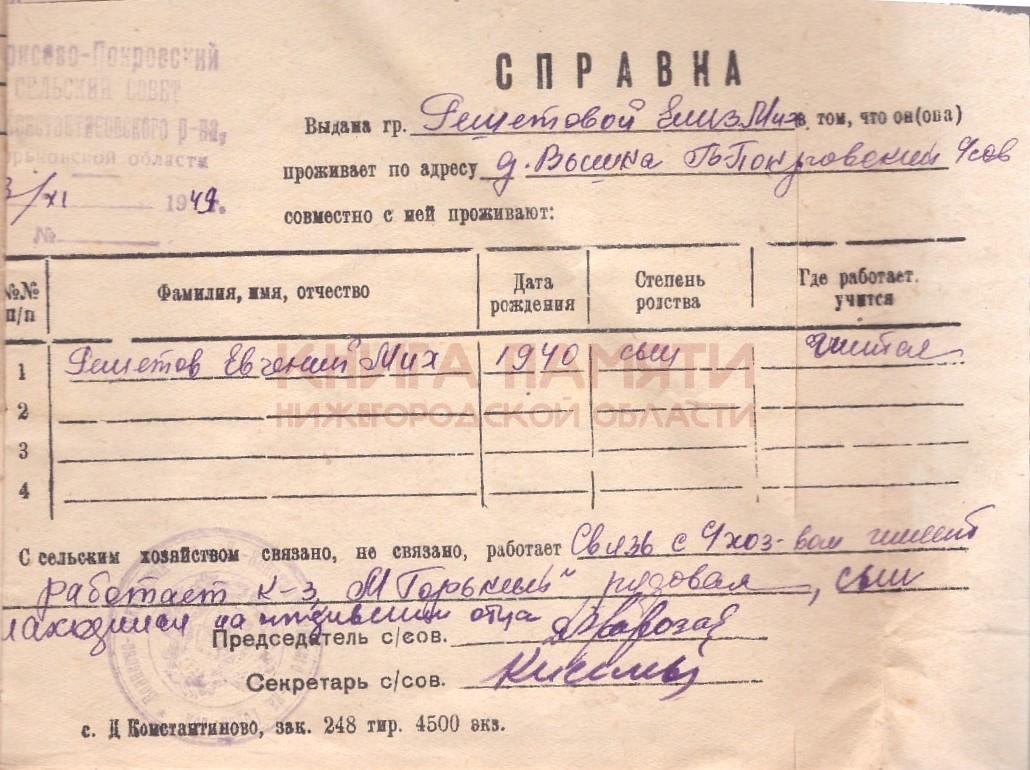 Борисово-Покровский
СЕЛЬСКИЙ СОВЕТ
Константиновского р-на,
Горьковской области
3/XI 1949г.
№
СПРАВКА
Выдана гр. Решетовой Елиз Мих в том, что он(она)
проживает по адресу д. Вышка Б-Покровский
совместно с ней проживают:
№№ п/п Фамилия, имя, отчество Дата рождения Степень родства Где работает. учится
1 Решетов Евгений Мих 1940 сын учится
2
3
4
КНИГА ПАМЯТИ
НИЖЕГОРОДСКОЙ ОБЛАСТИ
С сельским хозяйством связано, не связано, работает Связь с с/хоз-вом имеет
работает к-з "М Горький" рядовая, сын
находился на иждивении отца
Председатель с/сов.
Секретарь с/сов.
с. Д Константиново, зак. 248 тир. 4500 экз.